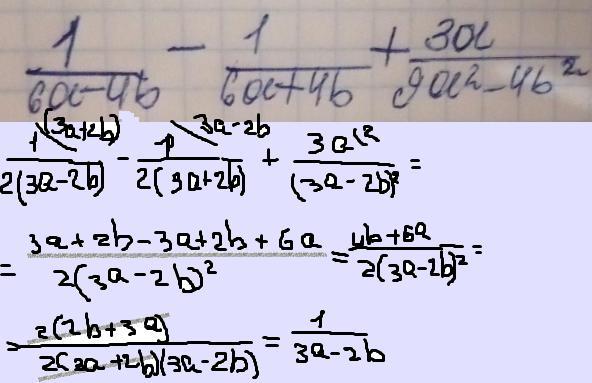 1/(6a-4b) - 1/(6a+4b) + 3a/(9a²-4b²)
1\(3a+2b)/2(3a-2b) - 1\3a-2b/2(3a+2b) + 3a\(2/(3a-2b)² =
= (3a+2b-3a+2b+6a)/2(3a-2b)² = (4b+6a)/2(3a-2b)² =
= 2(2b+3a)/2(3a+2b)(3a-2b) = 1/(3a-2b)